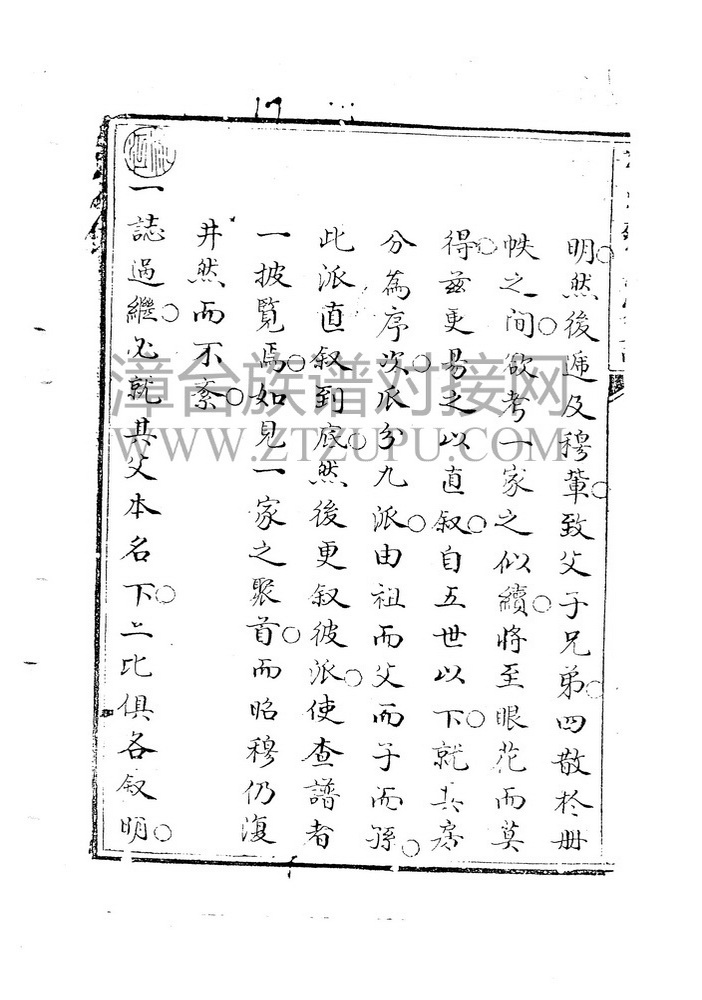 明。然後遞及穆輩。致父子兄弟。四散於冊
帙之間。欲考一家之似續。將至眼花而莫
得。茲更易之以直叙。自五世以下。就其房
分為序次。瓜分九派。由祖而父而子而孫。
此派直叙到底。然後更叙彼派。使查譜者
一披覧焉。如見一家之聚首。而昭穆仍復
井然而不紊。
一誌過繼。必就其父本名下。二比俱各叙明。
漳台族谱对接网
WWW.ZTZUPU.COM